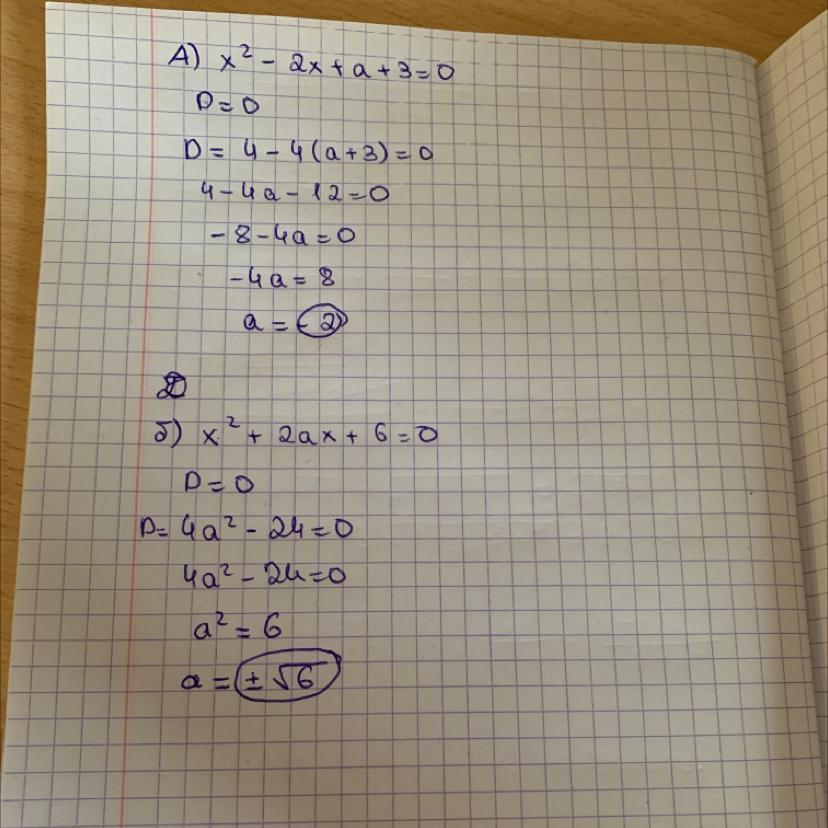 А) x² - 2x + a + 3 = 0
D = 0
D = 4 - 4(a+3) = 0
4 - 4a - 12 = 0
- 8 - 4a = 0
- 4a = 8
a = - 2
б) x² + 2ax + 6 = 0
D = 0
D = 4a² - 24 = 0
4a² - 24 = 0
a² = 6
a = ± √6